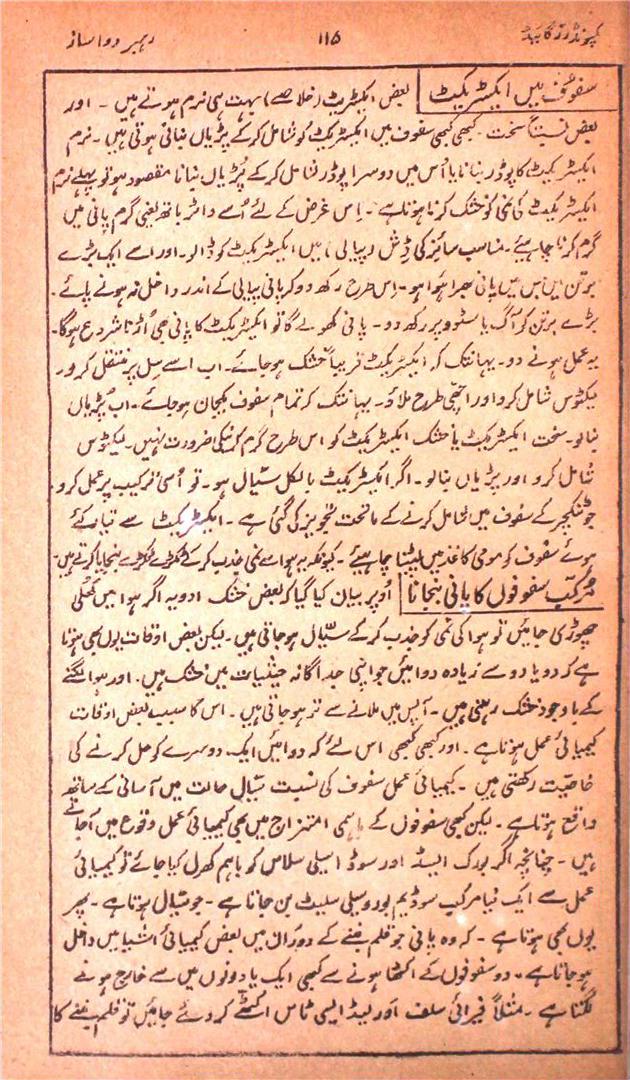 کمپونڈرز گائیڈ ۱۱۵ رہبر دوا ساز
سفوف میں ایکسٹریکٹ بعض ایکسٹریکٹ (خلاصے) بہت ہی نرم ہوتے ہیں ۔ اور
بعض نسبتاً سخت ۔ کبھی کبھی سفوف میں ایکسٹریکٹ کو شامل کرکے پڑیاں بنانی ہوتی ہیں ۔ نرم
ایکسٹریکٹ کا پوڈر بنانا یا اُس میں دوسرا پوڈر شامل کرکے پُڑیاں بنانا مقصود ہو تو پہلے نرم
ایکسٹریکٹ کی نمی کو خشک کرنا ہوتا ہے ۔ اِس غرض کے لئے اُسے واٹر باتھ یعنی گرم پانی میں
گرم کرنا چاہیئے ۔ مناسب سائز کی ڈِش (پیالی) میں ایکسٹریکٹ کو ڈالو ۔ اور اسے ایک بڑے
برتن میں جس میں پانی بھرا ہوا ہو ۔ اِس طرح رکھ دو کہ پانی پیالی کے اندر داخل نہ ہونے پائے ۔
بڑے برتن کو آگ یا سٹوو پر رکھ دو ۔ پانی کھولے گا تو ایکسٹریکٹ کا پانی بھی اُڑنا شروع ہوگا ۔
یہ عمل ہونے دو ۔ یہانتک کہ ایکسٹریکٹ قریباً خشک ہو جائے ۔ اب اسے سِل پر منتقل کرو ۔
لیکٹوس شامل کرو اور اچھی طرح ملاؤ ۔ یہانتک کہ تمام سفوف یکجان ہو جائے ۔ اب پُڑیاں
بنالو ۔ سخت ایکسٹریکٹ یا خشک ایکسٹریکٹ کو اس طرح گرم کرنیکی ضرورت نہیں ۔ لیکٹوس
شامل کرو اور پڑیاں بنالو ۔ اگر ایکسٹریکٹ بالکل سیّال ہو ۔ تو اُسی ترکیب پر عمل کرو ۔
جو ٹنکچر کے سفوف میں شامل کرنے کے ماتحت تجویز کی گئی ہے ۔ ایکسٹریکٹ سے تیار کئے
ہوئے سفوف کو مومی کاغذ میں لپیٹنا چاہیئے ۔ کیونکہ یہ ہوا سے نمی جذب کرکے ٹکڑے ٹکڑے بنجایا کرتے ہیں ۔
مرکب سفوفوں کا پانی بنجانا اُوپر بیان کیا گیا کہ بعض خشک ادویہ اگر ہوا میں کُھلی
چھوڑی جائیں تو ہوا کی نمی کو جذب کرکے سیّال ہو جاتی ہیں ۔ لیکن بعض اوقات یوں بھی ہوتا
ہے کہ دو یا دو سے زیادہ دوائیں جو اپنی جداگانہ حیثیات میں خشک ہیں ۔ اور ہوا لگنے
کے باوجود خشک رہتی ہیں ۔ آپس میں ملانے سے تر ہو جاتی ہیں ۔ اس کا سبب بعض اوقات
کیمیائی عمل ہوتا ہے ۔ اور کبھی کبھی اس لئے کہ دوائیں ایک دوسرے کو حل کرنے کی
خاصیّت رکھتی ہیں ۔ کیمیائی عمل سفوف کی نسبت سیّال حالت میں آسانی کے ساتھ
واقع ہوتا ہے ۔ لیکن کبھی سفوفوں کے باہمی امتزاج میں بھی کیمیائی عمل وقوع میں آجاتے
ہیں ۔ چنانچہ اگر بورک ایسڈ اور سوڈا سیلی سلاس کو باہم کھرل کیا جائے تو کیمیائی
عمل سے ایک نیا مرکب سوڈیم بوروسیلی سلیٹ بن جاتا ہے ۔ جو سیّال ہوتا ہے ۔ پھر
یوں بھی ہوتا ہے ۔ کہ وہ پانی جو قلم بننے کے دوران میں بعض کیمیائی اشیا میں داخل
ہو جاتا ہے ۔ دو سفوفوں کے اکٹھا ہونے سے کبھی ایک یا دونوں میں سے خارج ہونے
لگتا ہے ۔ مثلاً فیرائی سلف اور لیڈ ایسی ٹاس اکٹھے کر دئے جائیں تو قلم بننے کا